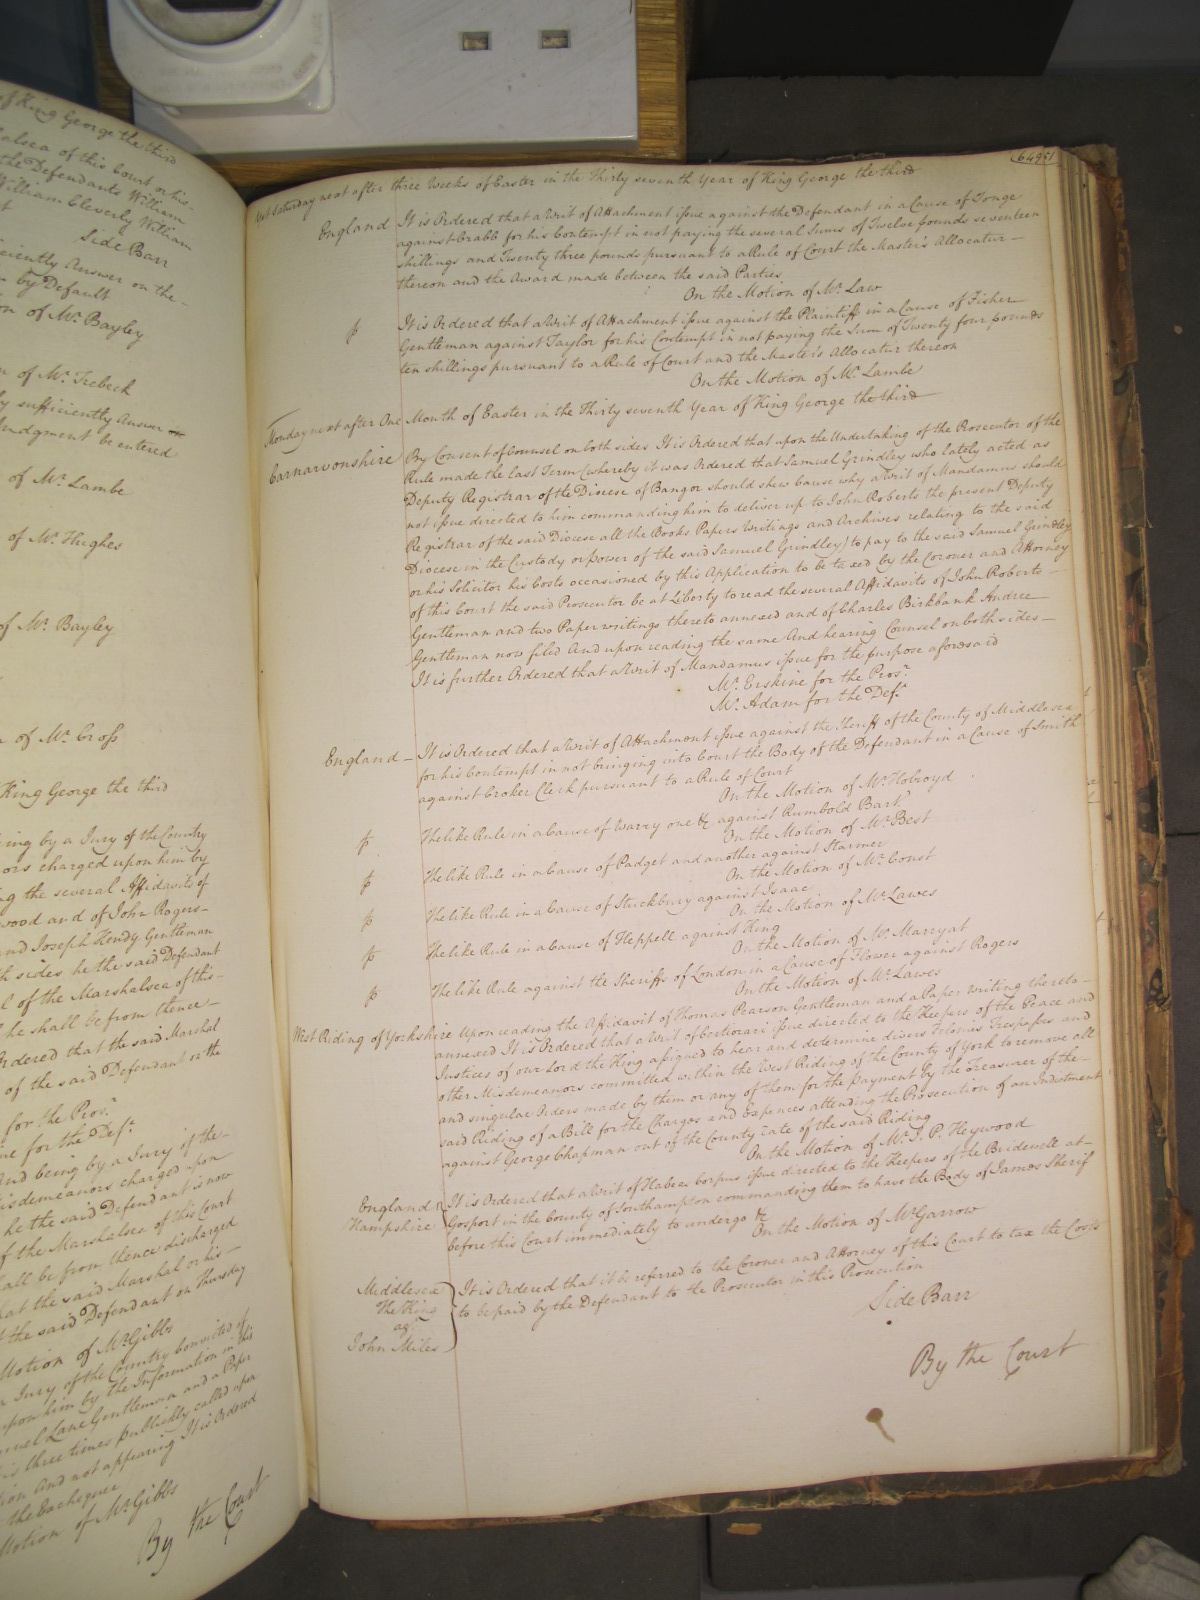 of King George the third
alsea of this Court or his
the Defendants William
William Cleverly William
Side Barr
ciently Answer on the
by Default
on of Mr. Bayley
of Mr. Trebeck
ly sufficiently Answer
Judgment be entered
of Mr. Lambe
of Mr. Hughes
of Mr. Bayley
of Mr. Cross
King George the third
being by a Jury of the Country
ors charged upon him by
ing the several Affidavits of
wood and of John Rogers
and Joseph Hendy Gentleman
h sides he the said Defendant
l of the Marshalsea of this
he shall be from thence
Ordered that the said Marshal
of the said Defendant or the
for the Prosr.
ne for the Deft.
And being by a Jury of the
isdemeanors charged upon
he the said Defendant is now
of the Marshalsea of this Court
all be from thence discharged
hat the said Marshal or his
the said Defendant on Thursday
Motion of Mr. Gibbs
a Jury of the Country Convicted of
upon him by the Information in this
muel Lane Gentleman and a Paper
is three times publickly called upon
ion And not appearing It is Ordered
the Exchequer
Motion of Mr. Gibbs
By the Court
Saturday next after three Weeks of Easter in the Thirty seventh Year of King George the third
England It is Ordered that a Writ of Attachment issue against the Defendant in a Cause of Tonge
against Crabb for his Contempt in not paying the several Sums of Twelve pounds seventeen
shillings and Twenty three pounds pursuant to a Rule of Court the Master's Allocatur
thereon and the Award made between the said Parties
On the Motion of Mr. Law
It is Ordered that a Writ of Attachment issue against the Plaintiff in a Cause of Fisher
Gentleman against Taylor for his Contempt in not paying the Sum of Twenty four pounds
ten shillings pursuant to a Rule of Court and the Master's Allocatur thereon
On the Motion of Mr. Lambe
Monday next after One Month of Easter in the Thirty seventh Year of King George the third
Carnarvonshire By Consent of Counsel on both sides It is Ordered that upon the Undertaking of the Prosecutor of the
Rule made the last Term (whereby it was Ordered that Samuel Grindley who lately acted as
Deputy Registrar of the Diocese of Bangor should shew Cause why a Writ of Mandamus should
not issue directed to him commanding him to deliver up to John Roberts the present Deputy
Registrar of the said Diocese all the Books Papers Writings and Archives relating to the said
Diocese in the Custody or power of the said Samuel Grindley) to pay to the said Samuel Grindley
or his Solicitor his Costs occasioned by this Application to be taxed by the Coroner and Attorney
of this Court the said Prosecutor be at Liberty to read the several Affidavits of John Roberts
Gentleman and two Paper writings thereto annexed and of Charles Birkbank Andree
Gentleman now filed And upon reading the same And hearing Counsel on both sides
It is further Ordered that a Writ of Mandamus issue for the purpose aforesaid
Mr. Erskine for the Prosr.
Mr. Adam for the Deft.
England It is Ordered that a Writ of Attachment issue against the Sheriff of the County of Middlesex
for his Contempt in not bringing into Court the Body of the Defendant in a Cause of Smith
against Croker Clerk pursuant to a Rule of Court
On the Motion of Mr. Holroyd
The like Rule in a Cause of Warry one &c against Rumbold Bart.
On the Motion of Mr. Best
The like Rule in a Cause of Padget and another against Starmer
On the Motion of Mr. Const
The like Rule in a Cause of Stuckbury against Isaac
On the Motion of Mr. Lawes
The like Rule in a Cause of Heppell against King
On the Motion of Mr. Marryat
The like Rule against the Sheriffs of London in a Cause of Flower against Rogers
On the Motion of Mr. Lawes
West Riding of Yorkshire Upon reading the Affidavit of Thomas Pearson Gentleman and a Paper Writing thereto
annexed It is Ordered that a Writ of Certiorari issue directed to the Keepers of the Peace and
Justices of our Lord the King assigned to hear and determine divers Felonies Trespasses and
other Misdemeanors committed within the West Riding of the County of York to remove all
and singular Orders made by them or any of them for the payment by the Treasurer of the
said Riding of a Bill for the Charges and Expences attending the Prosecution of an Indictment
against George Chapman out of the County rate of the said Riding
On the Motion of Mr. J. P. Heywood
England It is Ordered that a Writ of Habeas Corpus issue directed to the Keepers of the Bridewell at
Hampshire Gosport in the County of Southampton commanding them to have the Body of James Sherif
before this Court immediately to undergo &c
On the Motion of Mr. Garrow
Middlesex It is Ordered that it be referred to the Coroner and Attorney of this Court to tax the Costs
The King to be paid by the Defendant to the Prosecutor in this Prosecution
agt.
John Miles
Side Barr
By the Court